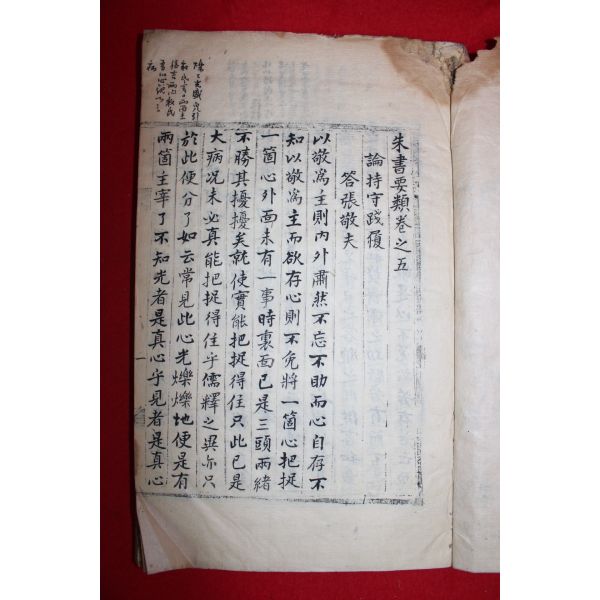 朱書要類卷之五
論持守踐履
答張敬夫
以敬爲主則內外肅然不忘不助而心自存不
知以敬爲主而欲存心則不免將一箇心把捉
一箇心外面未有一事時裏面已是三頭兩緒
不勝其擾擾矣就使實能把捉得住只此已是
大病况未必真能把捉得住乎儒釋之異亦只
於此便分了如云常見此心光爍爍地便是有
兩箇主宰了不知光者是真心乎見者是真心